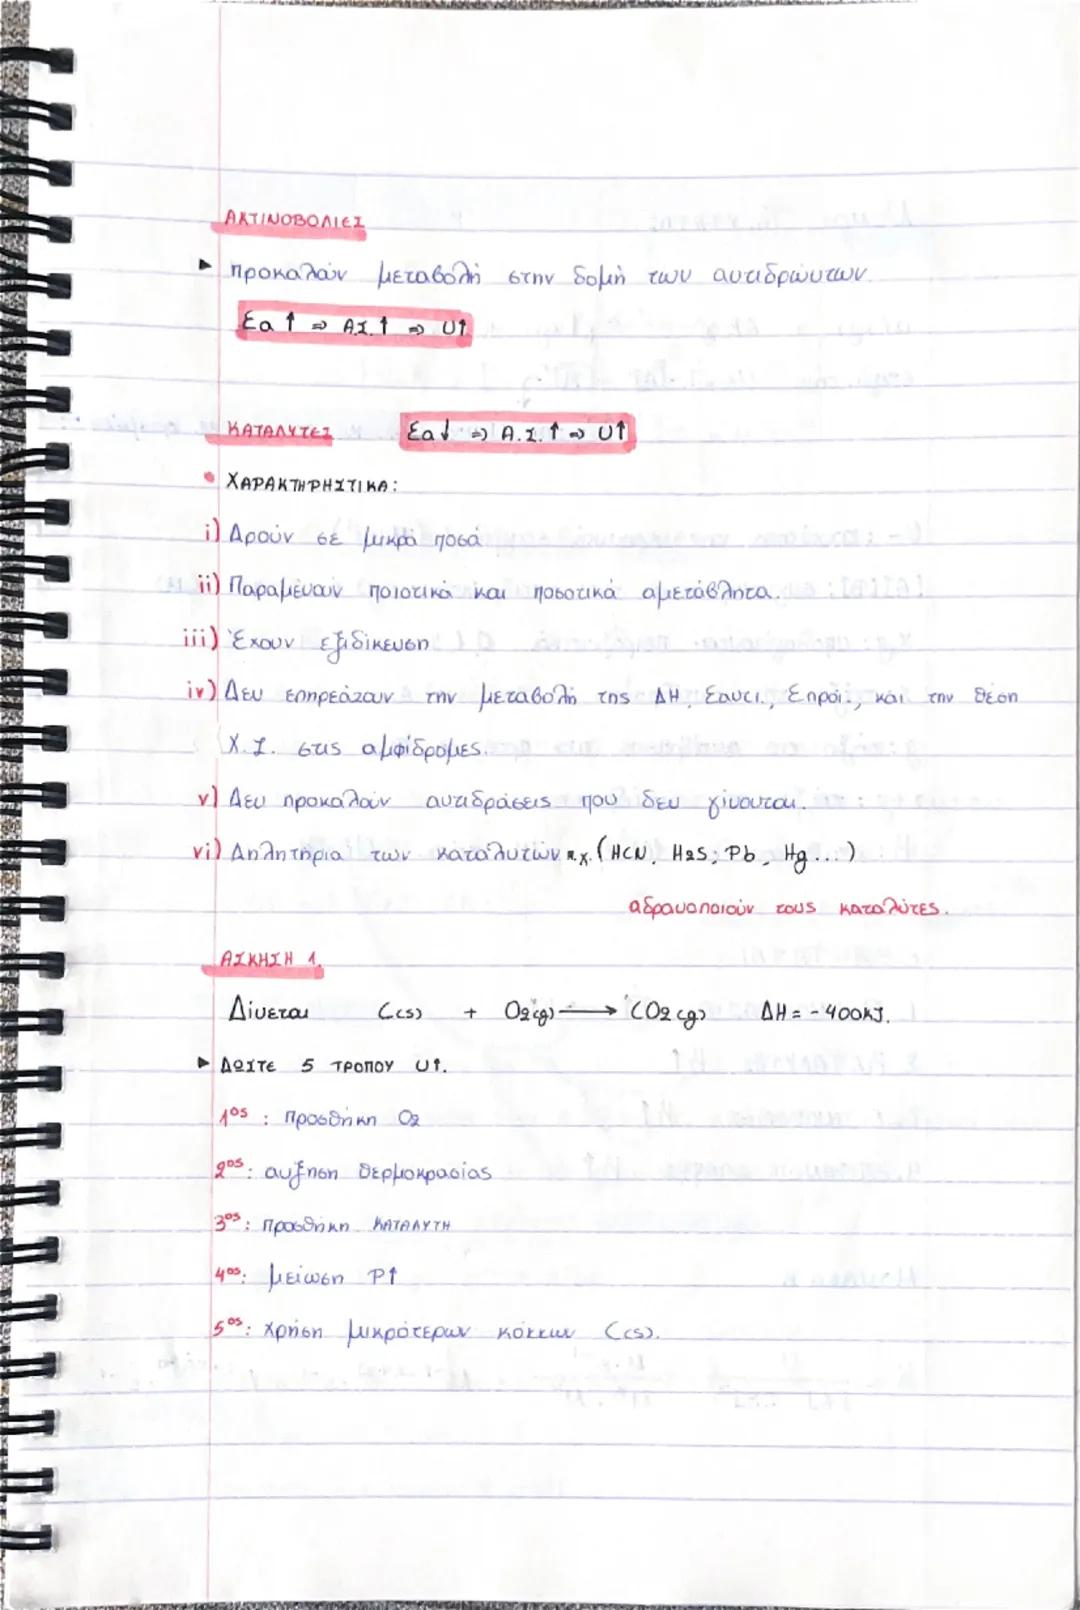 ΑΚΤΙΝΟΒΟΛΙΕΣ
► προκαλούν μεταβολή στην δομή των αντιδρώντων.
Εα ↑ ⇒ Α.Σ.↑ ⇒ U↑
ΚΑΤΑΛΥΤΕΣ Εα↓ ⇒ Α.Σ.↑ ⇒ U↑
• ΧΑΡΑΚΤΗΡΗΣΤΙΚΑ:
i) Δρούν σε μικρά ποσά
ii) Παραμένουν ποιοτικά και ποσοτικά αμετάβλητα.
iii) Έχουν εξιδίκευση
iv) Δεν επηρεάζουν την μεταβολή της ΔΗ, Εαντι., Επροϊ., και την θέση
Χ.Ι. στις αμφίδρομες.
v) Δεν προκαλούν αντιδράσεις που δεν γίνονται.
vi) Δηλητήρια των καταλυτών π.χ. (HCN, H2S, Pb, Hg...)
αδρανοποιούν τους καταλύτες.
ΑΣΚΗΣΗ 1.
Δίνεται C(s) + O2(g) → CO2(g) ΔΗ = -400kJ.
► ΔΩΣΤΕ 5 ΤΡΟΠΟΥ U↑.
1ος : προσθήκη O2
2ος : αυξηση θερμοκρασίας
3ος : προσθήκη ΚΑΤΑΛΥΤΗ
4ος : μείωση P↑
5ος : χρήση μικρότερων κόκκων C(s).